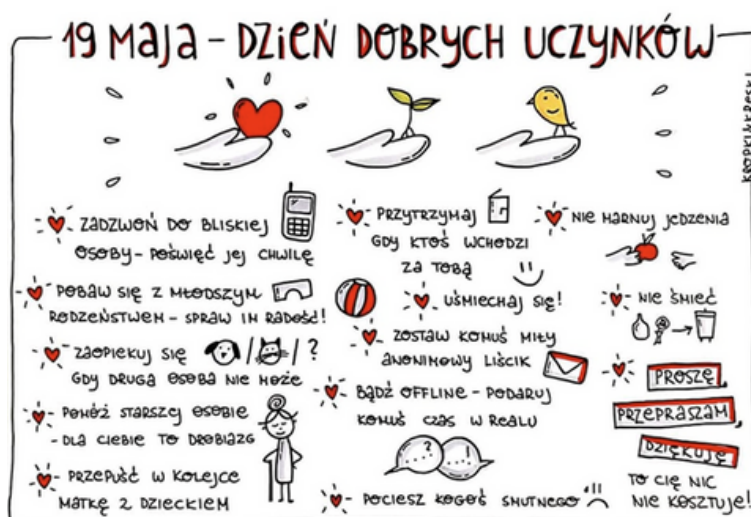 19 MAJA - DZIEŃ DOBRYCH UCZYNKÓW
KROPKI&KRESKI
ZADZWOŃ DO BLISKIEJ
OSOBY - POŚWIĘĆ JEJ CHWILĘ
POBAW SIĘ Z MŁODSZYM
RODZEŃSTWEM - SPRAW IM RADOŚĆ!
ZAOPIEKUJ SIĘ / / ?
GDY DRUGA OSOBA NIE MOŻE
POMÓŻ STARSZEJ OSOBIE
- DLA CIEBIE TO DROBIAZG
PRZEPUŚĆ W KOLEJCE
MATKĘ Z DZIECKIEM
PRZYTRZYMAJ
GDY KTOŚ WCHODZI
ZA TOBĄ
UŚMIECHAJ SIĘ!
ZOSTAW KOMUŚ MIŁY
ANONIMOWY LIŚCIK
BĄDŹ OFFLINE - PODARUJ
KOMUŚ CZAS W REALU
? ... ... !
POCIESZ KOGOŚ SMUTNEGO
NIE MARNUJ JEDZENIA
NIE ŚMIEĆ
PROSZĘ,
PRZEPRASZAM,
DZIĘKUJĘ
TO CIĘ NIC
NIE KOSZTUJE!